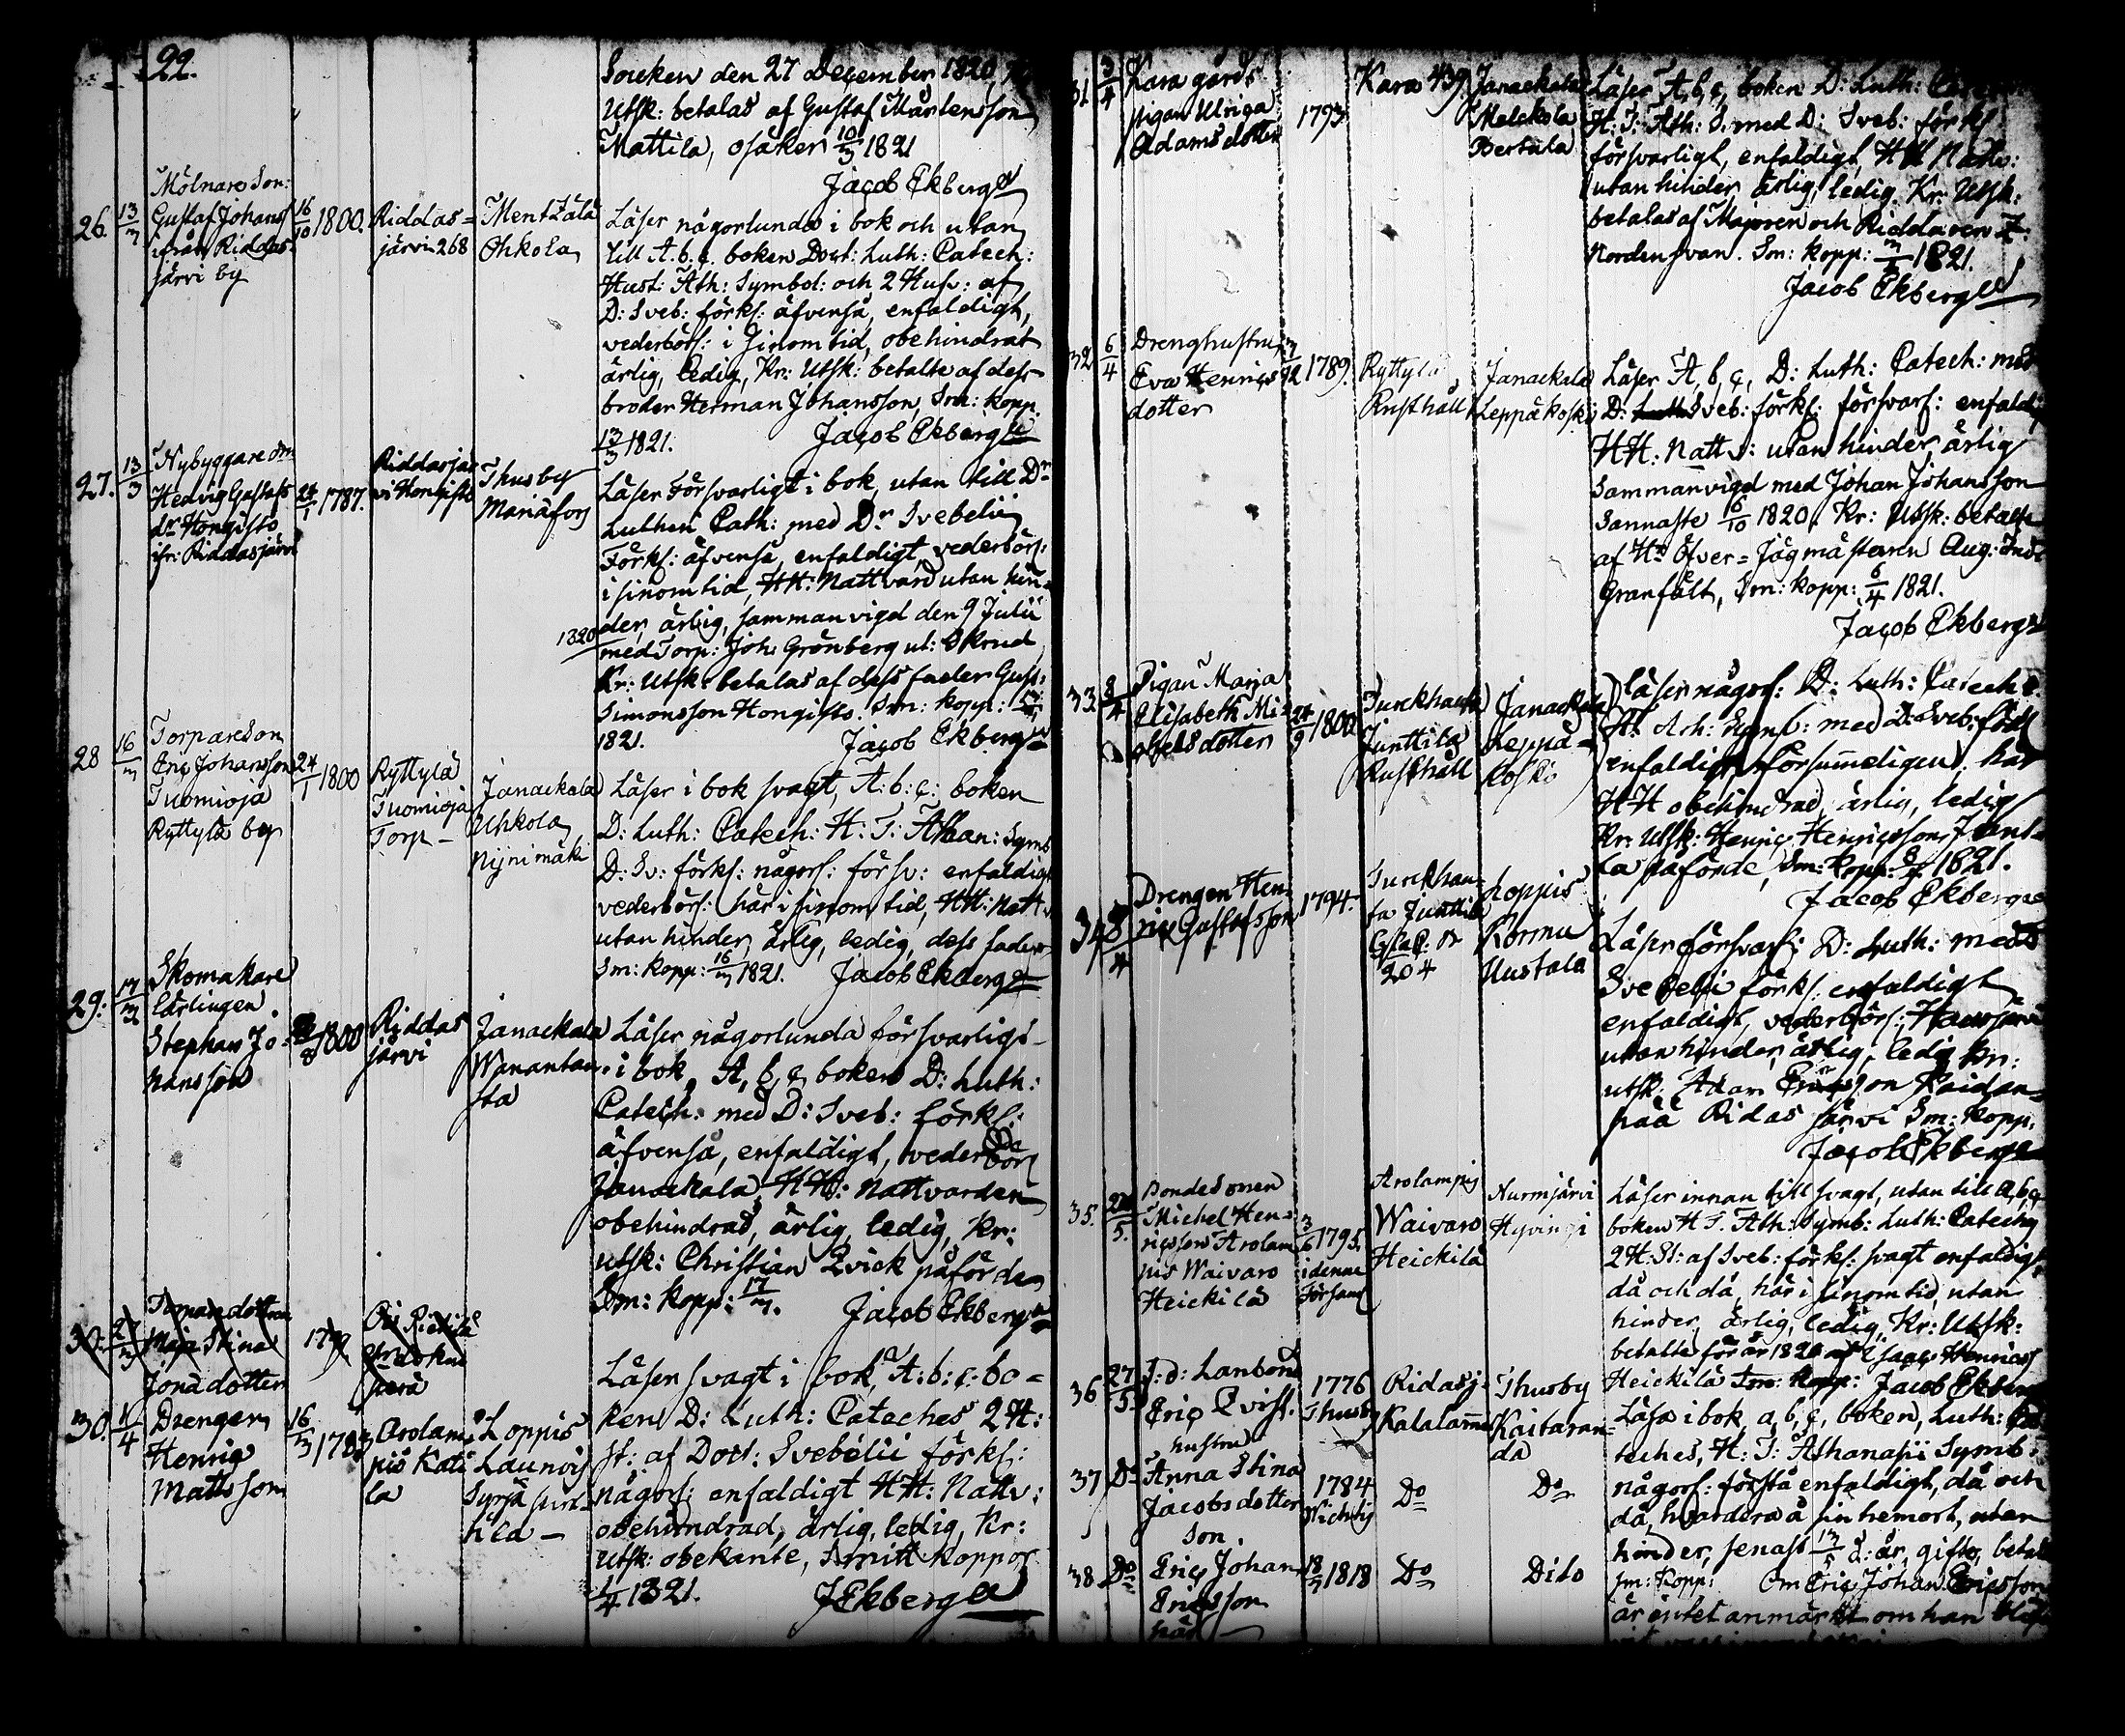 22.
Socken den 27 December 1820,
Utsk: betalas af Gustaf Mårtensson
Mattila, osaker 10/3 1821
Jacob Ekberg
26. 13/3
Mölnare Son:
Gustaf Johanss
ifrån Riddas-
järvi by
16/10 1800.
Riddas=
järvi 268
Mentzälä
Ohkola
Läser någorlunda i bok och utan
till A. b. c. boken Doct: Luth: Catech:
Hust: Ath: Symbol: och 2 Husv: af
D: Sveb: förkl: äfvenså, enfaldigt,
vederbörl: i sinom tid, obehindrat
ärlig, Ledig, Kr: Utsk: betalte af dess
broder Herman Johansson, Sm: kopp.
13/3 1821. Jacob Ekberg
27. 13/3
Nybyggare dr
Hedvig Gustafs
dr Hongisto
ifr: Riddasjärvi
24/1 1787.
Riddasjär
vi Hongisto
Thusby
Mariæfors
Läser Försvarligt i bok, utan till Dr
Lutheri Cath: med Dr Svebelii
Förkl: äfvenså, enfaldigt, vederbörl:
i sinom tid, HH: Nattvard utan hin=
der, ärlig, sammanvigd den 9 Julii
1820
med Torp: Joh: Grönberg ut:
Kr: Utsk: betalas af dess fader Gust:
Simonsson Hongisto. Sm: kopp: 13/3
1821. Jacob Ekberg
28 16/3
Torpareson
Eric Johansson
Tuomioja
Ryttylä by
24/1 1800
Ryttylä
Tuomioja
Torp
Janackala
Uhkola
Nijnimäki
Läser i bok svagt, A: b: c: boken
D: Luth: Catech: H: T: Athan: Symb
D: Sv: förkl: någorl: försv: enfaldigt
vederbörl: här i sinom tid, HH: Natt
utan hinder, ärlig, ledig, dess fader
Sm: kopp: 16/3 1821. Jacob Ekberg
29. 17/3
Skomakare
Lärlingen
Stephan Jo-
hansson
1800
Riddas
järvi
Janackala
Wanantau
sta
Läser någorlunda försvarligt
i bok, A, b, c, boken D: Luth:
Catech: med D: Sveb: förkl:
äfvenså, enfaldigt, vederbörl
Janackala, HH: Nattvarden
obehindrad, ärlig, ledig, Kr:
utsk: Christian Qvick påförde
Sm: kopp: 17/3. Jacob Ekberg
Maja Stina
Jona dotter
30. 1/4
Drengen
Henric
Mattsson
16/3
Arolam=
pis Kati
la
Loppis
Launois
Syrjä
Läser svagt i bok, A: b: c: bo=
ken D: Luth: Cateches 2 H:
st: af Doct: Svebelii förkl:
någorl: enfaldigt HH: Nattv:
obehindrad, ärlig, ledig, Kr:
Utsk: obekante, Smitt koppor
1/4 1821. J Ekberg
31 3/4
Kara gårds
pigan Ulrica
Adamsdotter
1793
Kara 439
Janackala
Melckola
Bertula
Läser A, b, c, boken D: Luth:
H: T: Ath: S: med D: Sveb: förkl
försvarligt, enfaldigt, HH Nattv:
utan hinder ärlig, ledig. Kr: Utsk:
betalas af Majoren och Riddaren
Nordensvan. Sm: kopp: 1821.
Jacob Ekberg
32 6/4
Drenghustru
Eva Henrics
dotter
1789.
Ryttylä
Rusthåll
Janackala
Leppäkoski
Läser A, b, c, D: Luth: Catech: med
D: Sveb: förkl: försvarl: enfaldig
HH: Nattv: utan hinder, ärlig
Sammanvigd med Johan Johansson
Sannaste 6/10 1820. Kr: Utsk: betalte
af Hr Öfver=Jägmästaren Aug:
Granfält, Sm: kopp: 6/4 1821.
Jacob Ekberg
33 8/4
Pigan Maria
Elisabeth Mi=
chelsdotter
24/9 1800
Turckhauta
Junttila
Rusthåll
Janackala
Leppä=
koski
Läser någorl: D: Luth: Catech:
med D: Sveb:
enfaldigt, har
HH obehindrad, ärlig, ledig
Kr: Utsk: Henric Henricsson Junt=
la påförde, Sm: kopp: 8/4 1821.
Jacob Ekberg
34 8/4
Drengen Hen
ric Gustafsson
1794.
Turckhau-
ta Junttila
204
Loppis
Kormu
Uustalo
Läser försvarl: D: Luth: med D
Svebelii förkl: enfaldigt
enfaldigt, vederbörl: Hausjärvi
utan hinder, ärlig, ledig Kr:
utsk: Adam Ericsson Raidan=
pää Ridasjärvi Sm: kopp.
Jacob Ekberg
35. 5.
Bondesonen
Michel Hen=
ricsson Arolam
pis Waivaro
Heickilä
3/6 1795.
i denne
Församl
Arolampis
Waivaro
Heickilä
Nurmjärvi
Hyvin
Läser innan till svagt, utan till a, b, c
boken H T. Ath: Symb: Luth: Catech
2 H: St: af Sveb: förkl: svagt enfaldigt,
då och då, här i sinom tid, utan
hinder, ärlig, ledig, Kr: Utsk:
betalte för år 1820 af Isaac Henricss
Heickilä Sm: kopp: Jacob Ekberg
36 27/5
Eric Qvist.
hustru
1776
Thusby
Ridasj.
Kalalammi
Thusby
Kaitaran=
da
Läsa i bok, a, b, c, boken, Luth: Ca
teches, H: T: Athanasii Symb:
någorl: förstå enfaldigt, då och
då, hvardera å sin hemort, utan
hinder, senast 13/5 d: år, gifte, betal
sm: kopp: Om Eric Johan Ericsson
är intet anmärkt om han
37 Do
Anna Stina
Jacobsdotter
Son.
1784
Wichtis
Do
Do
38 Do
Eric Johan
Ericsson
18/3 1818
Do
Dito